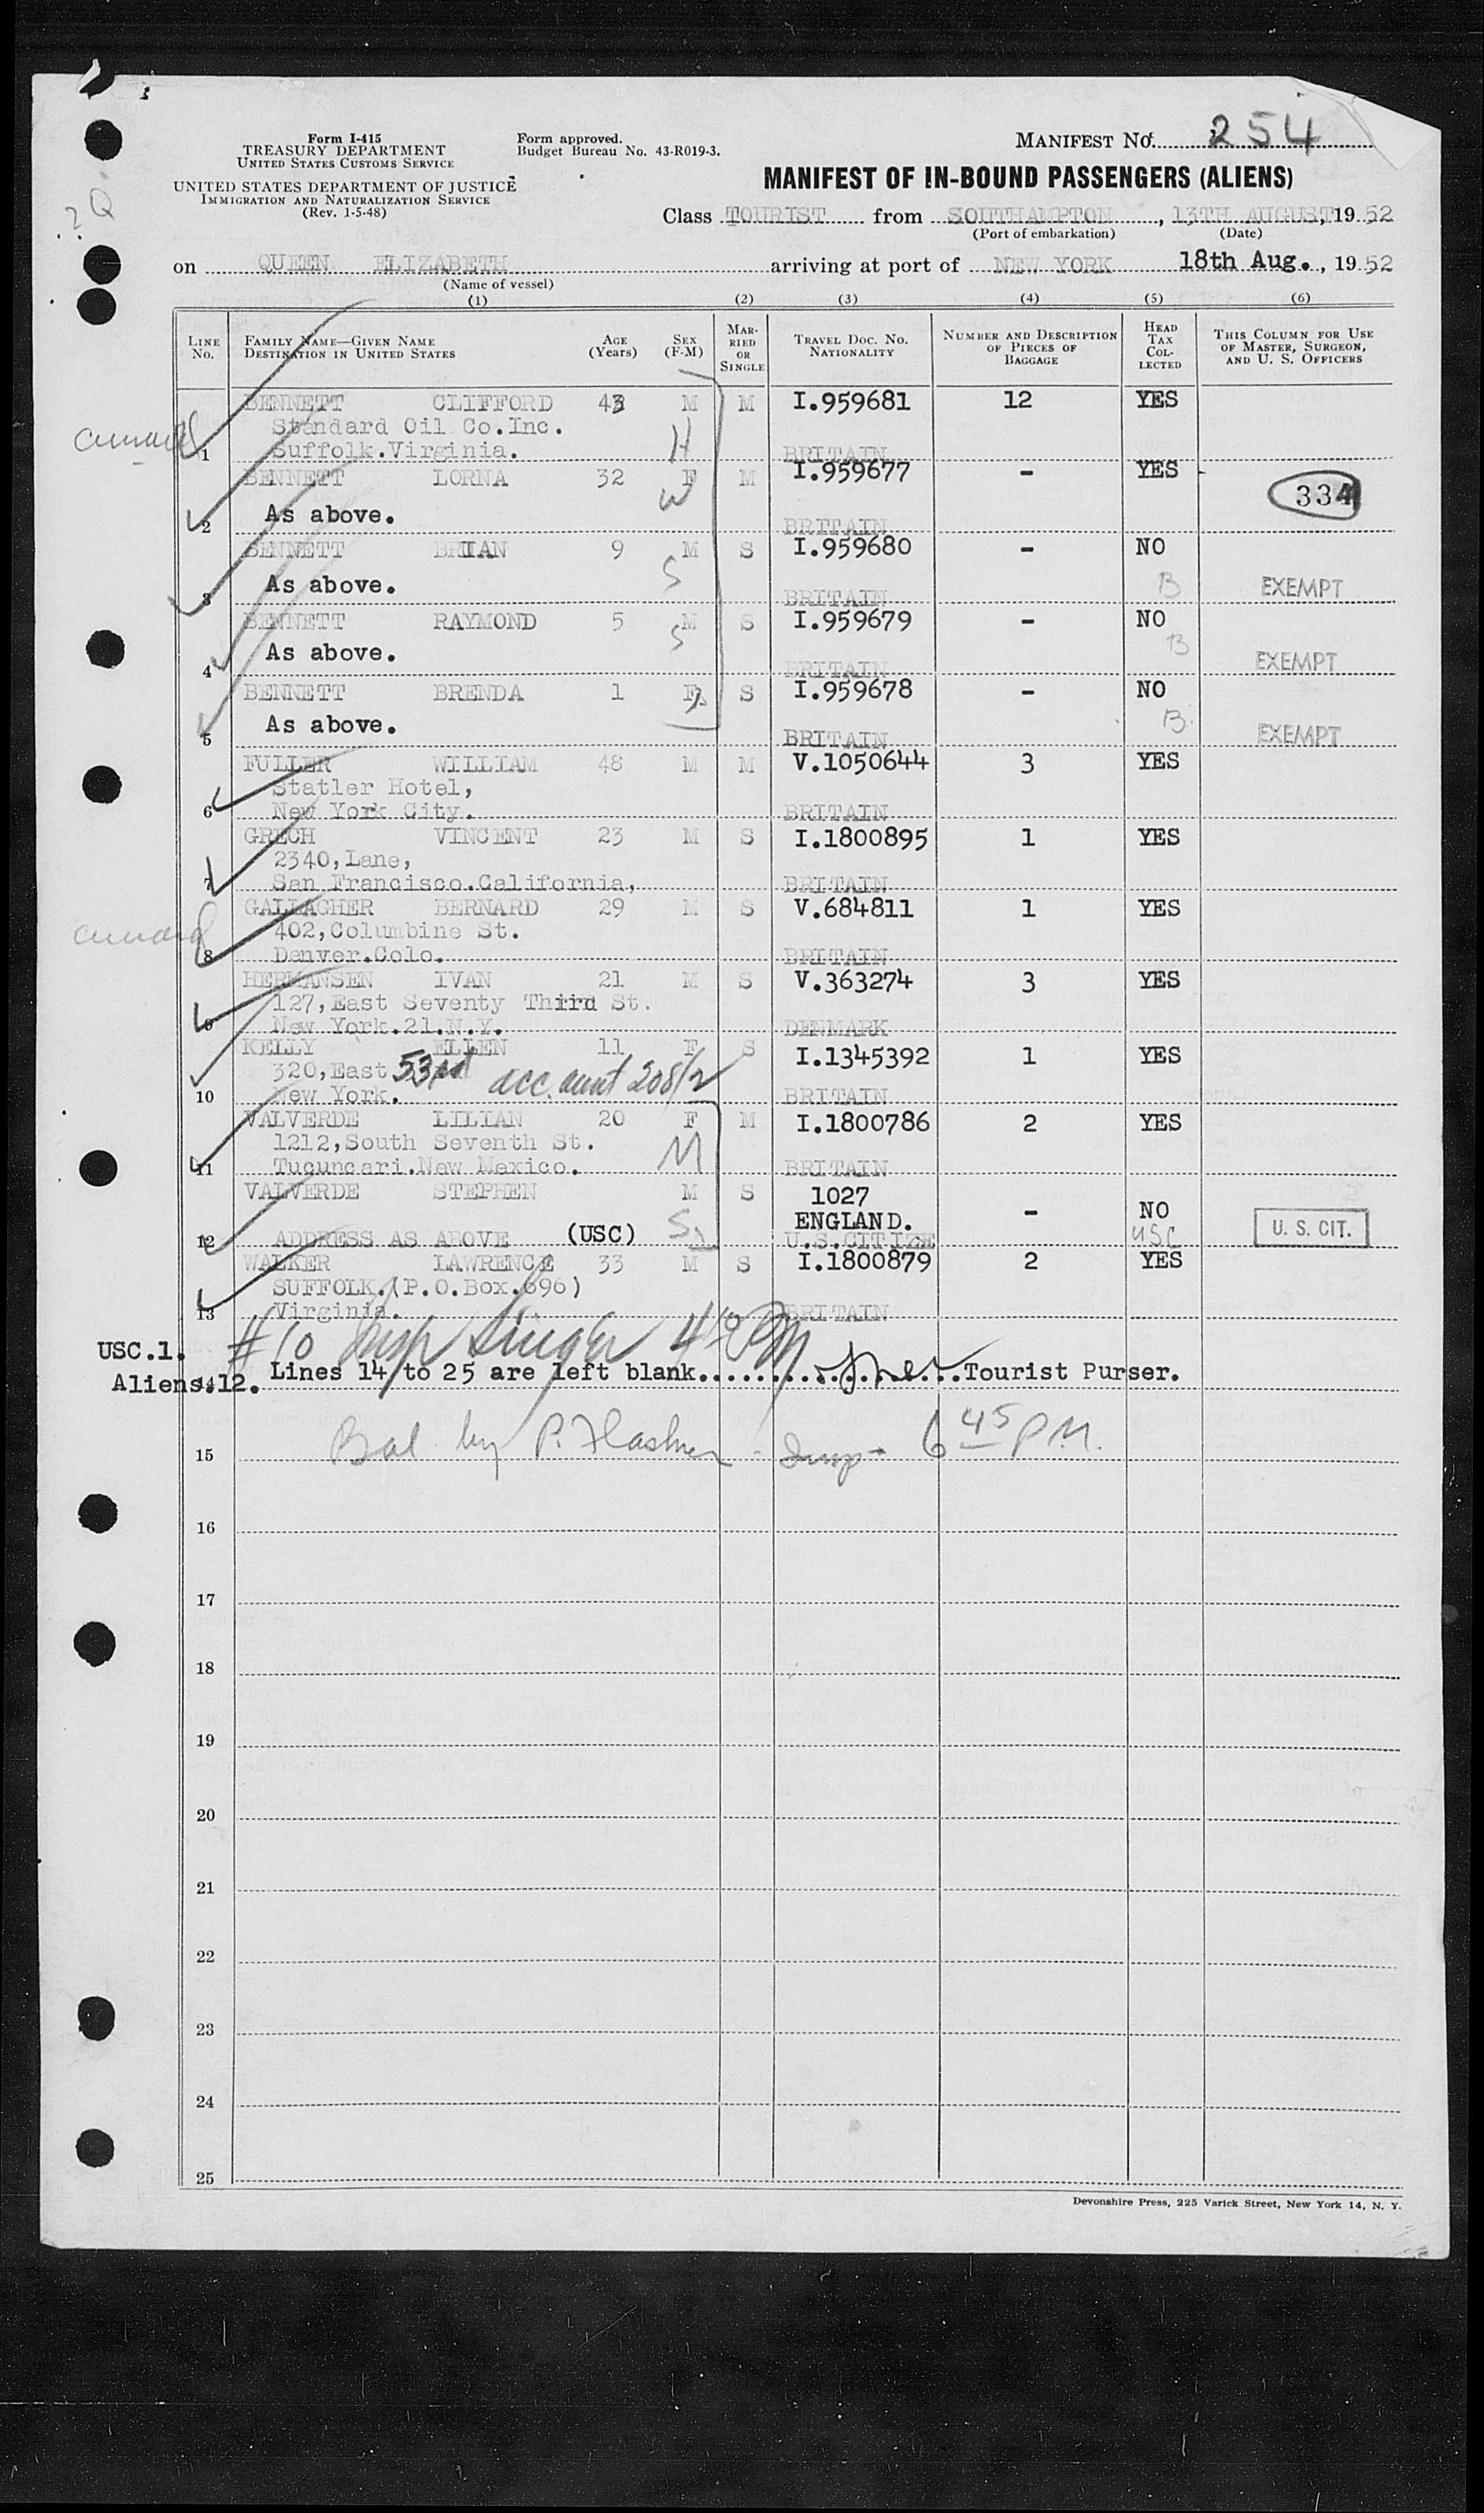 Form I-415
TREASURY DEPARTMENT
UNITED STATES CUSTOMS SERVICE
UNITED STATES DEPARTMENT OF JUSTICE
IMMIGRATION AND NATURALIZATION SERVICE
(Rev. 1-5-48)
Form approved.
Budget Bureau No. 43-R019-3.
MANIFEST No. 254
MANIFEST OF IN-BOUND PASSENGERS (ALIENS)
Class TOURIST from SOUTHAMPTON, 13TH AUGUST, 1952
(Port of embarkation) (Date)
on QUEEN ELIZABETH arriving at port of NEW YORK 18th Aug., 1952
(Name of vessel)
(1) (2) (3) (4) (5) (6)
LINE No. FAMILY NAME—GIVEN NAME DESTINATION IN UNITED STATES AGE (Years) SEX (F-M) MARRIED OR SINGLE TRAVEL DOC. NO. NATIONALITY NUMBER AND DESCRIPTION OF PIECES OF BAGGAGE HEAD TAX COLLECTED THIS COLUMN FOR USE OF MASTER, SURGEON, AND U. S. OFFICERS
BENNETT CLIFFORD 43 M M I.959681 12 YES
Standard Oil Co.Inc. H
1 Suffolk.Virginia. BRITAIN
BENNETT LORNA 32 F M I.959677 - YES
W 334
2 As above. BRITAIN
BENNETT BRIAN 9 M S I.959680 - NO
3 As above. S BRITAIN B EXEMPT
BENNETT RAYMOND 5 M S I.959679 - NO
4 As above. S BRITAIN B EXEMPT
BENNETT BRENDA 1 F S I.959678 - NO
5 As above. BRITAIN B EXEMPT
FULLER WILLIAM 48 M M V.1050644 3 YES
Statler Hotel,
6 New York City. BRITAIN
GRECH VINCENT 23 M S I.1800895 1 YES
2340,Lane,
7 San Francisco.California, BRITAIN
GALLAGHER BERNARD 29 M S V.684811 1 YES
402,Columbine St.
8 Denver.Colo. BRITAIN
HERMANSEN IVAN 21 M S V.363274 3 YES
127,East Seventy Third St.
9 New York.21.N.Y. DENMARK
KELLY ELLEN 11 F S I.1345392 1 YES
320,East 53rd acc. aunt 208/2
10 New York. BRITAIN
VALVERDE LILIAN 20 F M I.1800786 2 YES
1212,South Seventh St. M
11 Tucuncari.New Mexico. BRITAIN
VALVERDE STEPHEN M S 1027
ENGLAND. - NO
12 ADDRESS AS ABOVE (USC) S U.S.CITIZE USC U. S. CIT.
WALKER LAWRENCE 33 M S I.1800879 2 YES
SUFFOLK.(P.O.Box.696)
13 Virginia. BRITAIN
USC.1. #10 Insp Singer 4 10 PM
Aliens.12. 14 Lines 14 to 25 are left blank. Tourist Purser.
15 Bal by P. Flashner - Insp - 6 45 P.M.
16
17
18
19
20
21
22
23
24
25
Devonshire Press, 225 Varick Street, New York 14, N. Y.